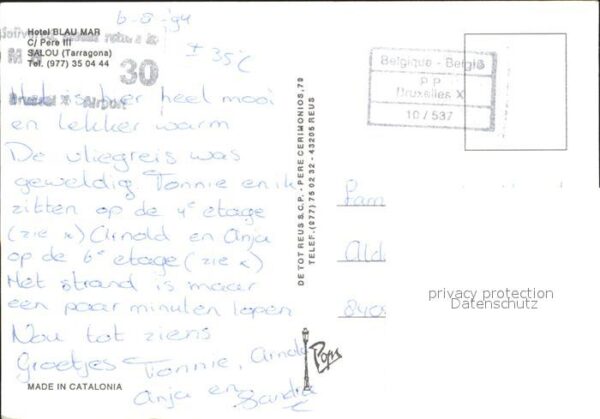 6-8-94
Hotel BLAU MAR
C/ Pere III
SALOU (Tarragona)
Tel. (977) 35 04 44
± 35°C
30
Brussel X Airport
Het is hier heel mooi
en lekker warm
De vliegreis was
geweldig Tonnie en ik
zitten op de 4e etage
(zie x) Arnold en Anja
op de 6e etage (zie x)
Het strand is maar
een paar minuten lopen
Nou tot ziens
Groetjes Tonnie, Arnold
Anja en Sandra
MADE IN CATALONIA
DE TOT REUS S.C.P. - PERE CERIMONIOS, 79
TELEF. (977) 75 02 32 - 43205 REUS
Pops
Belgique - België
P.P.
Bruxelles X
10 / 537
Fam
Ald
8408
privacy protection
Datenschutz